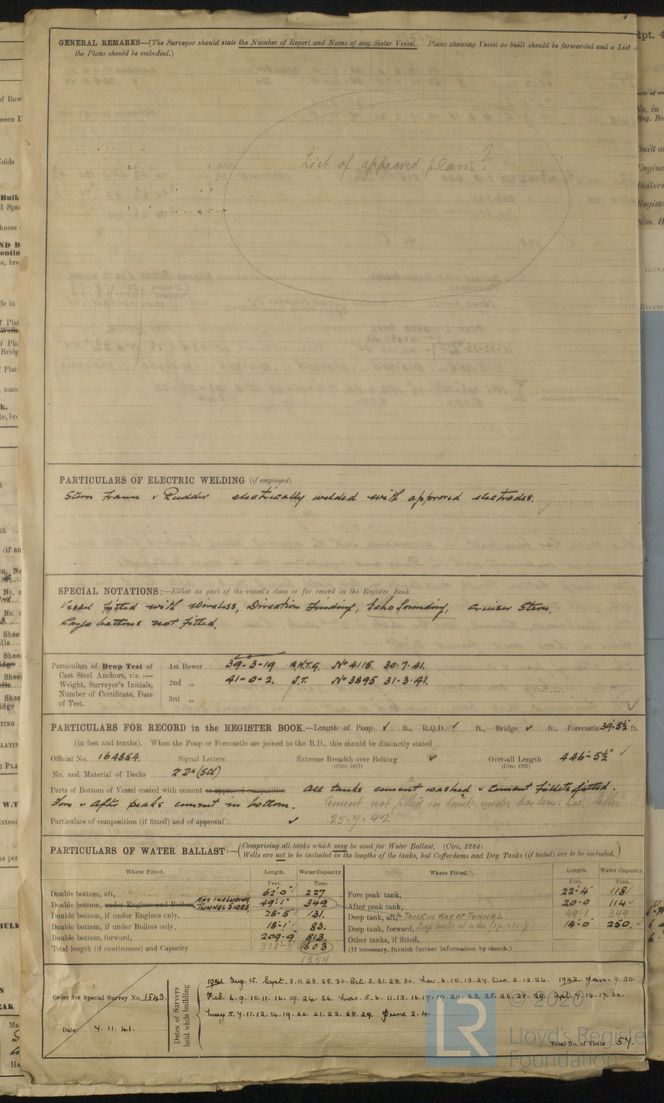 GENERAL REMARKS—(The Surveyor should state the Number of Report and Name of any Sister Vessel. Plans showing Vessel as built should be forwarded and a List
the Plans should be embodied.)
List of approved plans?
PARTICULARS OF ELECTRIC WELDING (if employed)
Stern Frame & Rudder electrically welded with approved electrodes.
SPECIAL NOTATIONS:—Either as part of the vessel's class or for record in the Register Book
Vessel fitted with Wireless, Direction Finding, Echo Sounding, Cruiser Stern.
Cargo battens not fitted.
Particulars of Drop Test of Cast Steel Anchors, viz.:— Weight, Surveyor's Initials, Number of Certificate, Date of Test.
1st Bower 39-3-19 No 4116 30.7.41.
2nd „ 41-0-2. J.T. No 3895 31.3.41.
3rd „
PARTICULARS FOR RECORD in the REGISTER BOOK.—Length of Poop ✓ ft., R.Q.D. ✓ ft., Bridge ✓ ft., Forecastle 39.5½ ft.
(in feet and tenths). When the Poop or Forecastle are joined to the B.D., this should be distinctly stated
Official No. 168864. Signal Letters Extreme Breadth over Belting ✓ Over-all Length 446-5½"
No. and Material of Decks 2 Dks (Stl)
Parts of Bottom of Vessel coated with cement or approved composition All tanks cement washed & cement fillets fitted.
Fore & After peaks cement in bottom. Cement not fitted in tank under boilers. letter
Particulars of composition (if fitted) and of approval ✓ 25.7.42
PARTICULARS OF WATER BALLAST:—(Comprising all tanks which may be used for Water Ballast. (Circ. 1284)
Wells are not to be included in the lengths of the tanks, but Cofferdams and Dry Tanks (if tested) are to be included.)
Where Fitted. Length. Water Capacity. Where Fitted. Length. Water Capacity.
Feet. Tons. Feet. Tons.
Double bottom, aft, 62-0" 227 Fore peak tank, 22-4" 118
Double bottom, under Engines and Boilers AFT INCLUDING TUNNEL SIDES, 49-1" 349 After peak tank, 20-0 114
Double bottom, if under Engines only, 28-5" 131. Deep tank, aft, TANK IN WAY OF TUNNEL 49-1 349
Double bottom, if under Boilers only, 18-1" 83. Deep tank, forward, 18-0" 260.
Double bottom, forward, 209-9" 813. Other tanks, if fitted,
Total length (if continuous) and Capacity 318-3 1603 (If necessary, furnish further information by sketch.)
1254
Order for Special Survey No. 1543.
Date 7.11.41.
Dates of Surveys held while building
1941 Aug. 15. Sept. 2.11.23.25.30. Oct. 2.21.28.30. Nov. 6.10.13.24. Dec. 2.12.24. 1942 Jan. 9.30.
Feb. 6.9.10.11.16.19.24.26. Mar. 5.6.11.13.16.17.19.20.23.25.26.28.29. Apl. 7.14.17.30.
May 5.7.11.12.14.19.20.21.22.28.29. June 2.4.
Total No. of Visits 57.
LR
© 2020
Lloyd's Register
Foundation